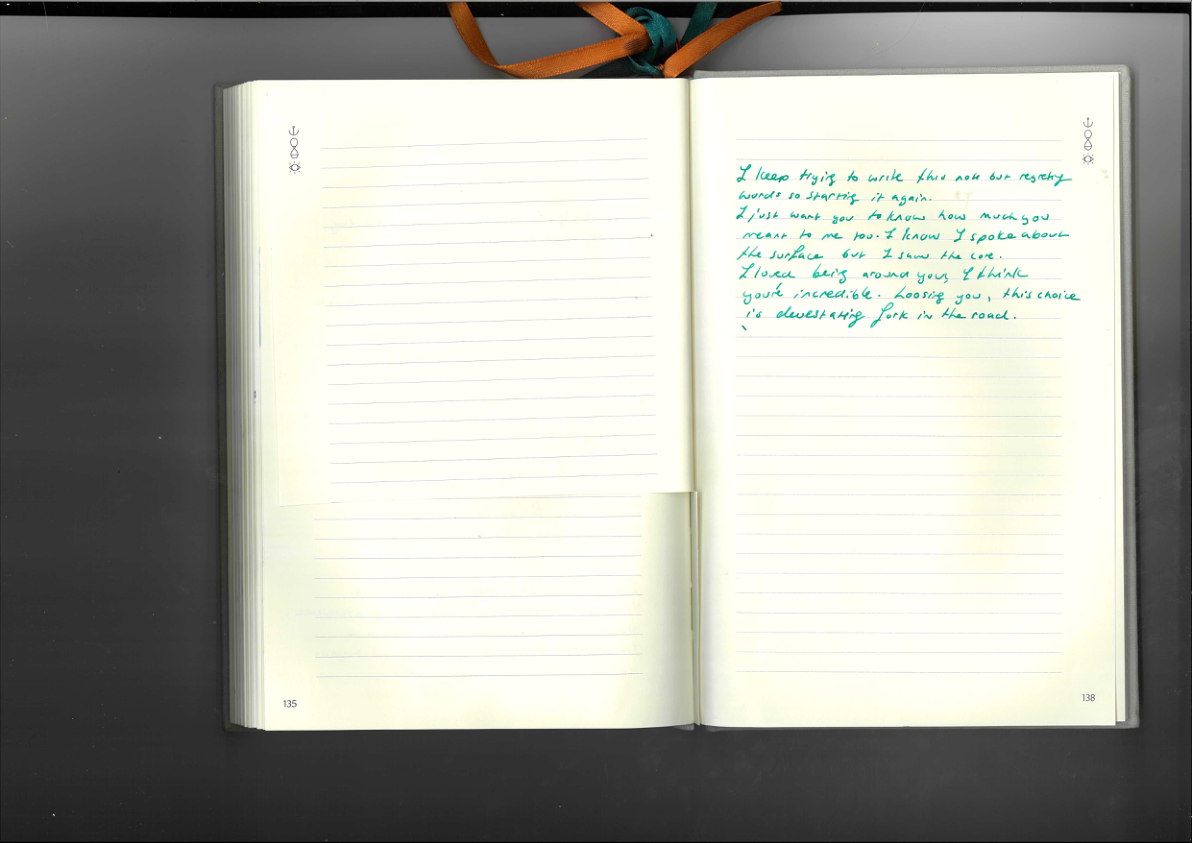 I keep trying to write this note but regreting
words so starting it again.
I just want you to know how much you
meant to me too. I know I spoke about
the surface but I saw the core.
I loved being around you, I think
you're incredible. Loosing you, this choice
is devestating fork in the road.
135
138